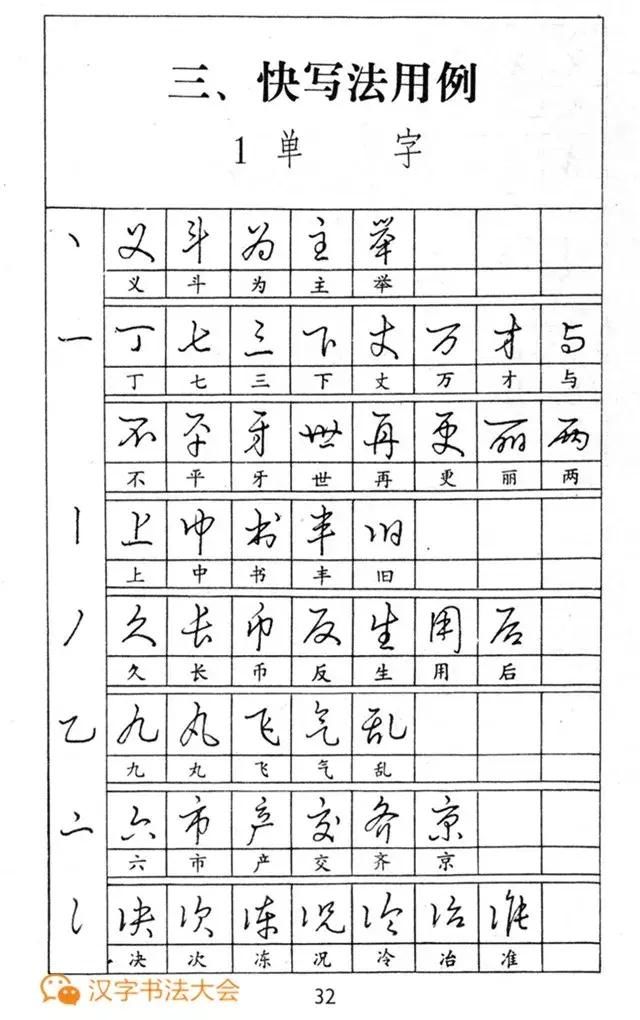 三、快写法用例
1 单 字
丶 义 斗 为 主 举
义 斗 为 主 举
一 丁 七 三 下 丈 万 才 与
丁 七 三 下 丈 万 才 与
不 平 牙 世 再 更 丽 两
不 平 牙 世 再 更 丽 两
丨 上 中 书 丰 旧
上 中 书 丰 旧
丿 久 长 币 反 生 用 后
久 长 币 反 生 用 后
乙 九 丸 飞 气 乱
九 丸 飞 气 乱
亠 六 市 产 交 齐 京
六 市 产 交 齐 京
冫 决 次 冻 况 冷 冶 准
决 次 冻 况 冷 冶 准
汉字书法大会
32